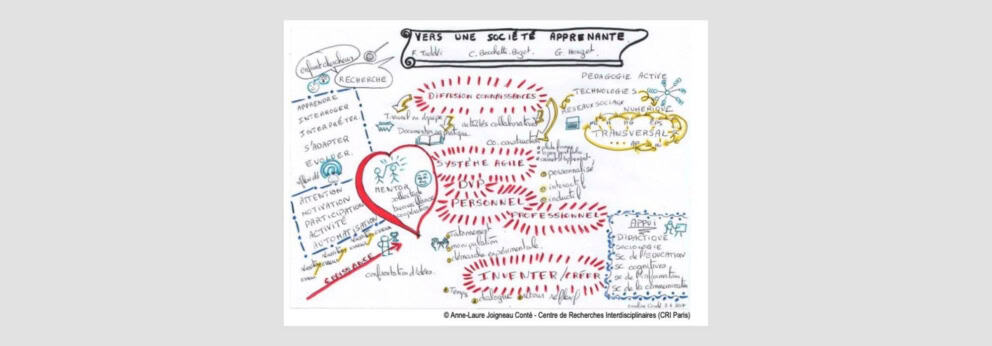 VERS UNE SOCIÉTÉ APPRENANTE
F. Taddéi C. Becchetti-Bizot G. Houzel
enfant chercheur
RECHERCHE
APPRENDRE
INTERROGER
INTERPRÉTER
S'ADAPTER
EVOLUER
ATTENTION
MOTIVATION
PARTICIPATION
ACTIVITÉ
AUTOMATISATION
CROISSANCE
MENTOR
bienveillance
coopération
confrontation d'idées
DIFFUSION CONNAISSANCES
Travail en équipe
activités collaboratives
Documentation
pratique
co-construction
SYSTÈME AGILE
DVP
PERSONNEL
PROFESSIONNEL
personnalisé
interactif
inductif
Tatonnement
manipulation
démarche expérimentale
INVENTER/CRÉER
Temps dialogue retour réflexif
PÉDAGOGIE ACTIVE
TECHNOLOGIES
RÉSEAUX SOCIAUX
NUMÉRIQUE
TRANSVERSAL
APPUI
DIDACTIQUE
SOCIOLOGIE
SC de l'ÉDUCATION
SC cognitives
SC de l'information
SC de la communication
© Anne-Laure Joigneau Conté - Centre de Recherches Interdisciplinaires (CRI Paris)